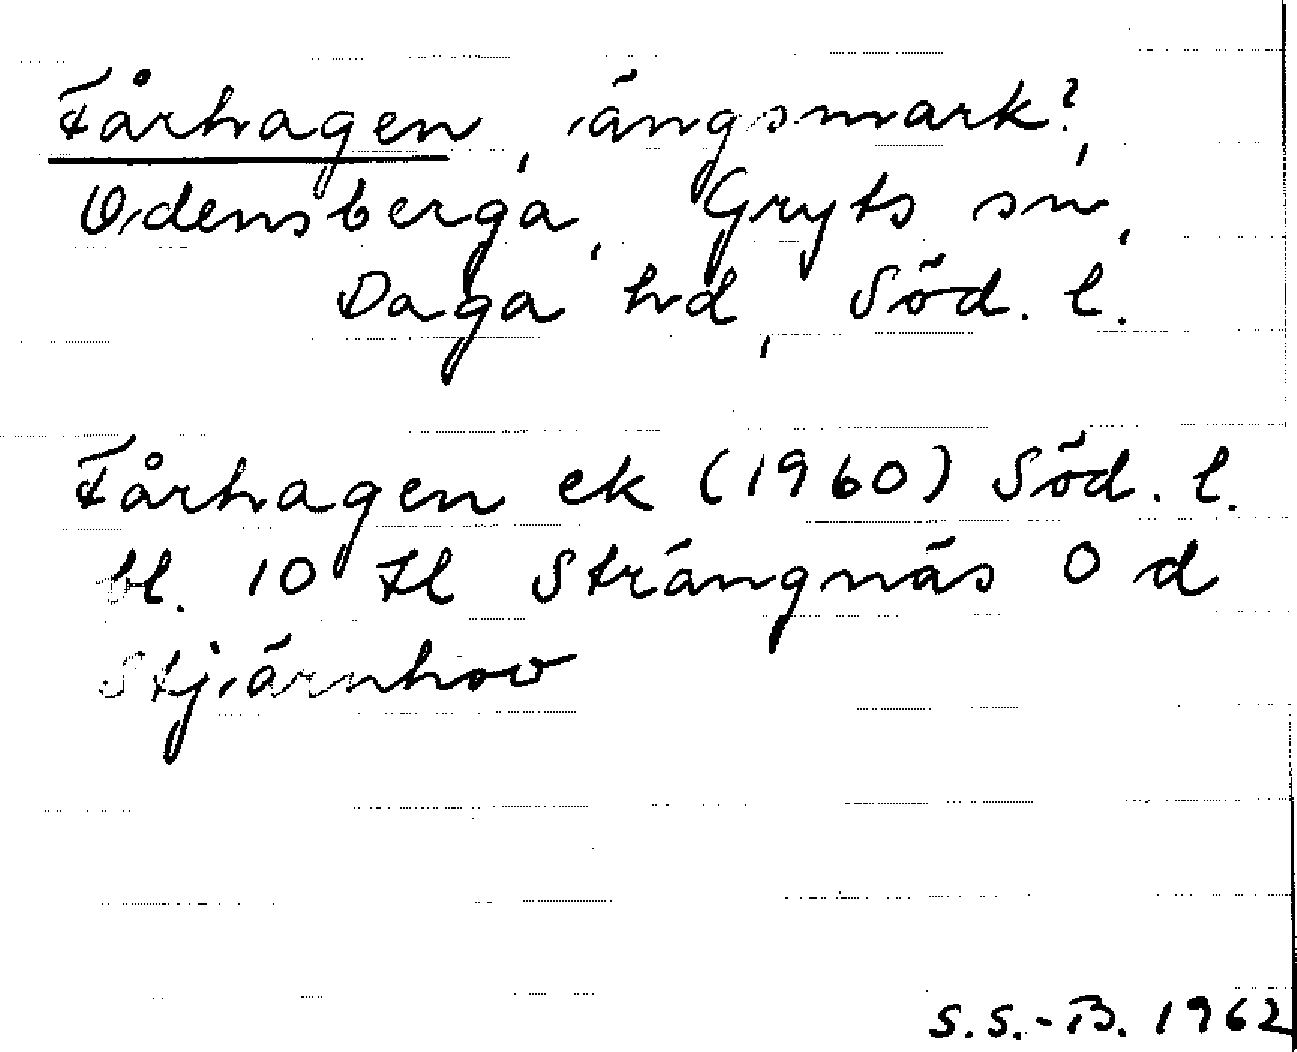 Fårhagen, ängsmark?,
Odensberga, Gryts sn,
Daga hd, Söd. l.
Fårhagen ek (1960) Söd. l.
bl. 10 H Strängnäs 0 d
Stjärnhov
S.S.-B. 1962